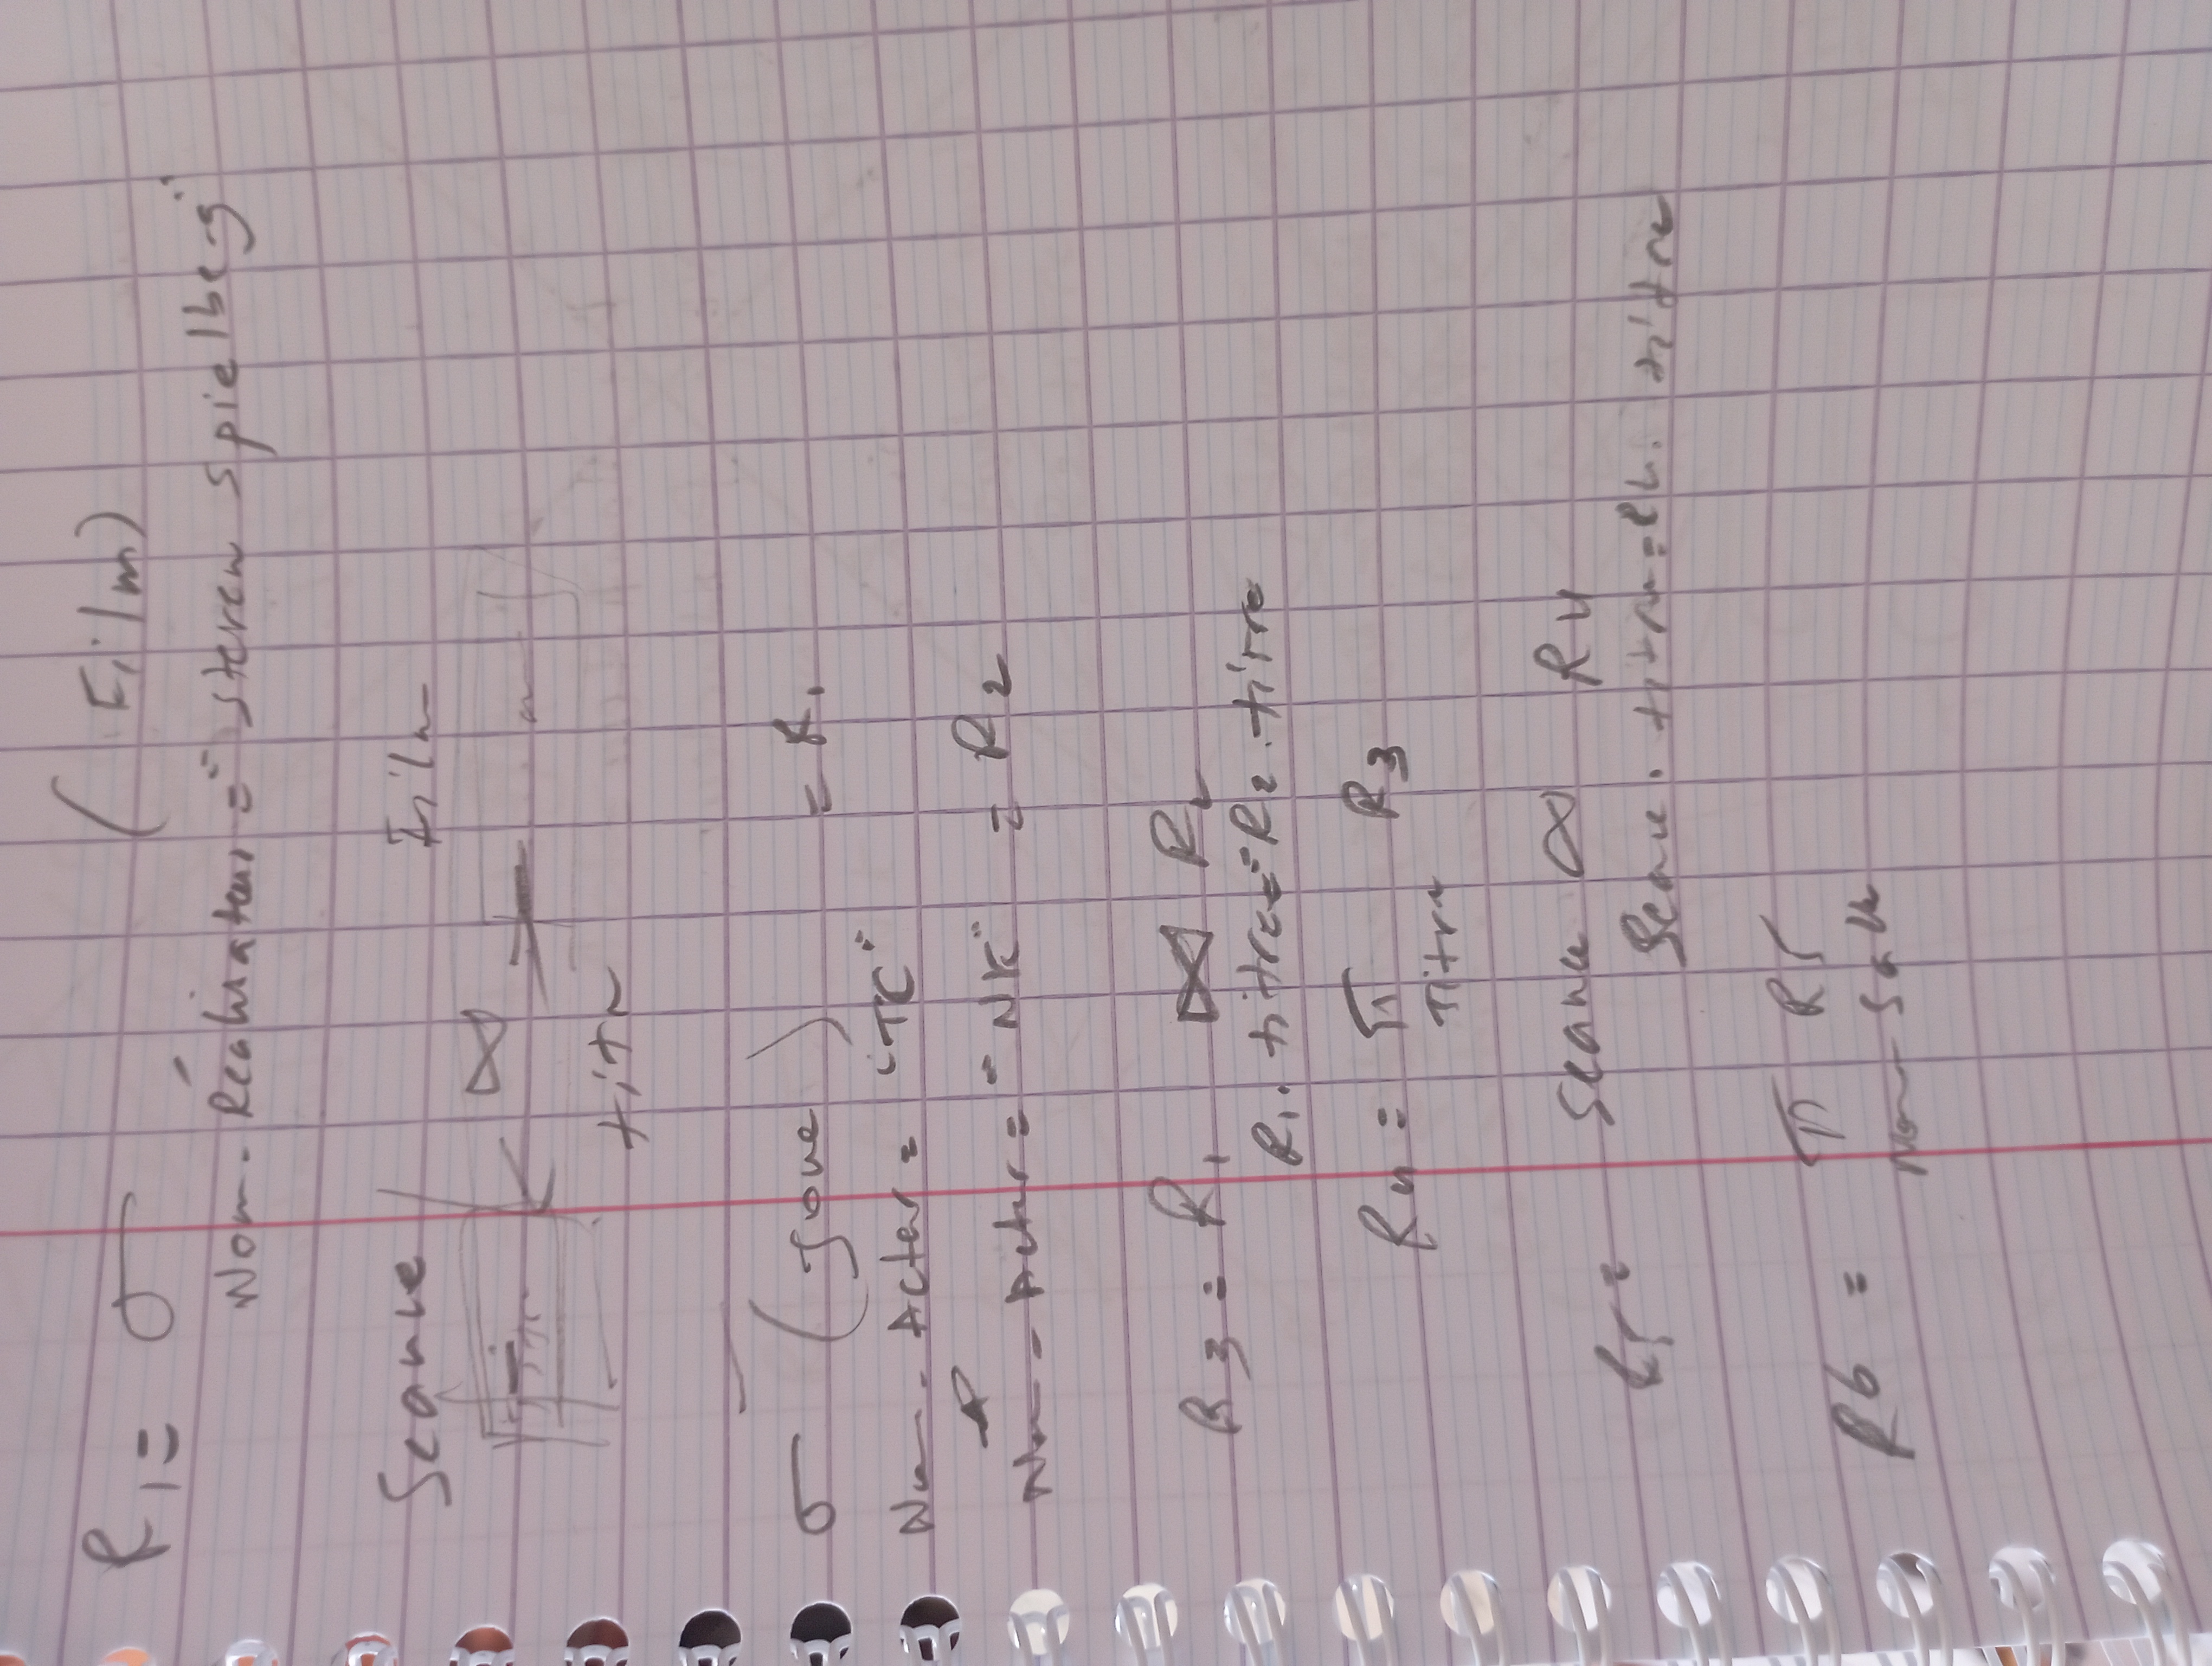 R1 = σ (Film)
Nom-Réalisateur = "steven spielberg"
Seance Film
⋈
titr
σ (joue) = R1
Nom-Acteur = "TC"
Nom-Acteur = "NK" = R2
R3 = R1 ⋈ R2
R1.titre = R2.titre
R4 = π R3
Titre
R5 = Seance ⋈ R4
Seance.titre = R4.titre
R6 = π R5
Nom-Salle